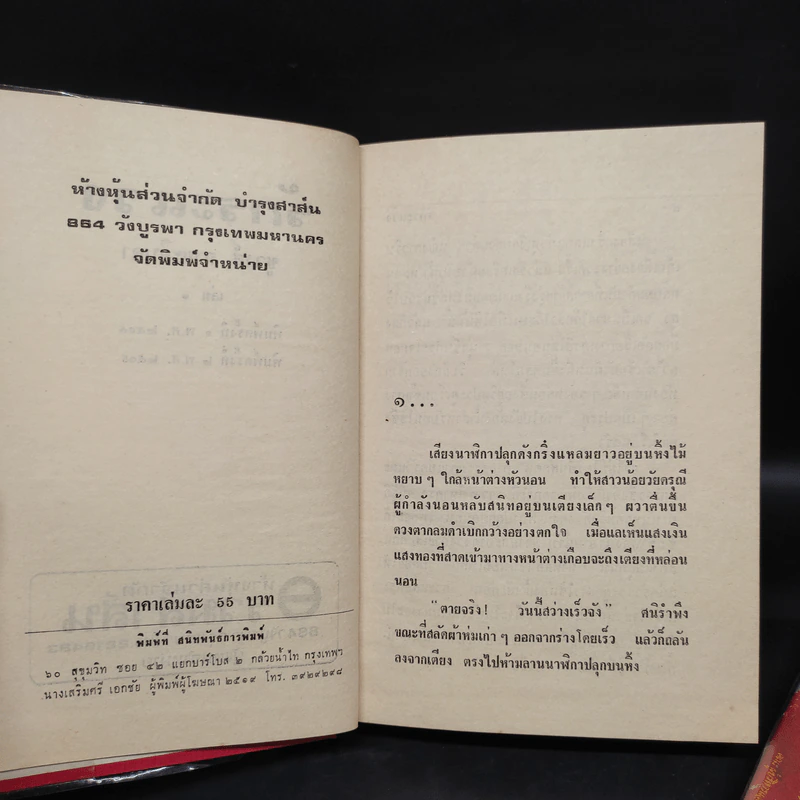 ห้างหุ้นส่วนจำกัด บำรุงสาส์น
864 วังบูรพา กรุงเทพมหานคร
จัดพิมพ์จำหน่าย
ราคาเล่มละ 55 บาท
พิมพ์ที่ สนิทพันธ์การพิมพ์
๖๐ สุขุมวิท ซอย ๔๒ แยกบาร์โบส ๒ กล้วยน้ำไท กรุงเทพฯ
นางเสริมศรี เอกชัย ผู้พิมพ์ผู้โฆษณา ๒๕๑๙ โทร. ๓๙๒๙๒๙๘
๑...
เสียงนาฬิกาปลุกดังกริ๋งแหลมยาวอยู่บนหิ้งไม้
หยาบ ๆ ใกล้หน้าต่างหัวนอน ทำให้สาวน้อยวัยดรุณี
ผู้กำลังนอนหลับสนิทอยู่บนเตียงเล็ก ๆ ผวาตื่นขึ้น
ดวงตากลมดำเบิกกว้างอย่างตกใจ เมื่อแลเห็นแสงเงิน
แสงทองที่สาดเข้ามาทางหน้าต่างเกือบจะถึงเตียงที่หล่อน
นอน
"ตายจริง! วันนี้สว่างเร็วจัง" ศนิรำพึง
ขณะที่สลัดผ้าห่มเก่า ๆ ออกจากร่างโดยเร็ว แล้วก็ถลัน
ลงจากเตียง ตรงไปห้ามลานนาฬิกาปลุกบนหิ้ง